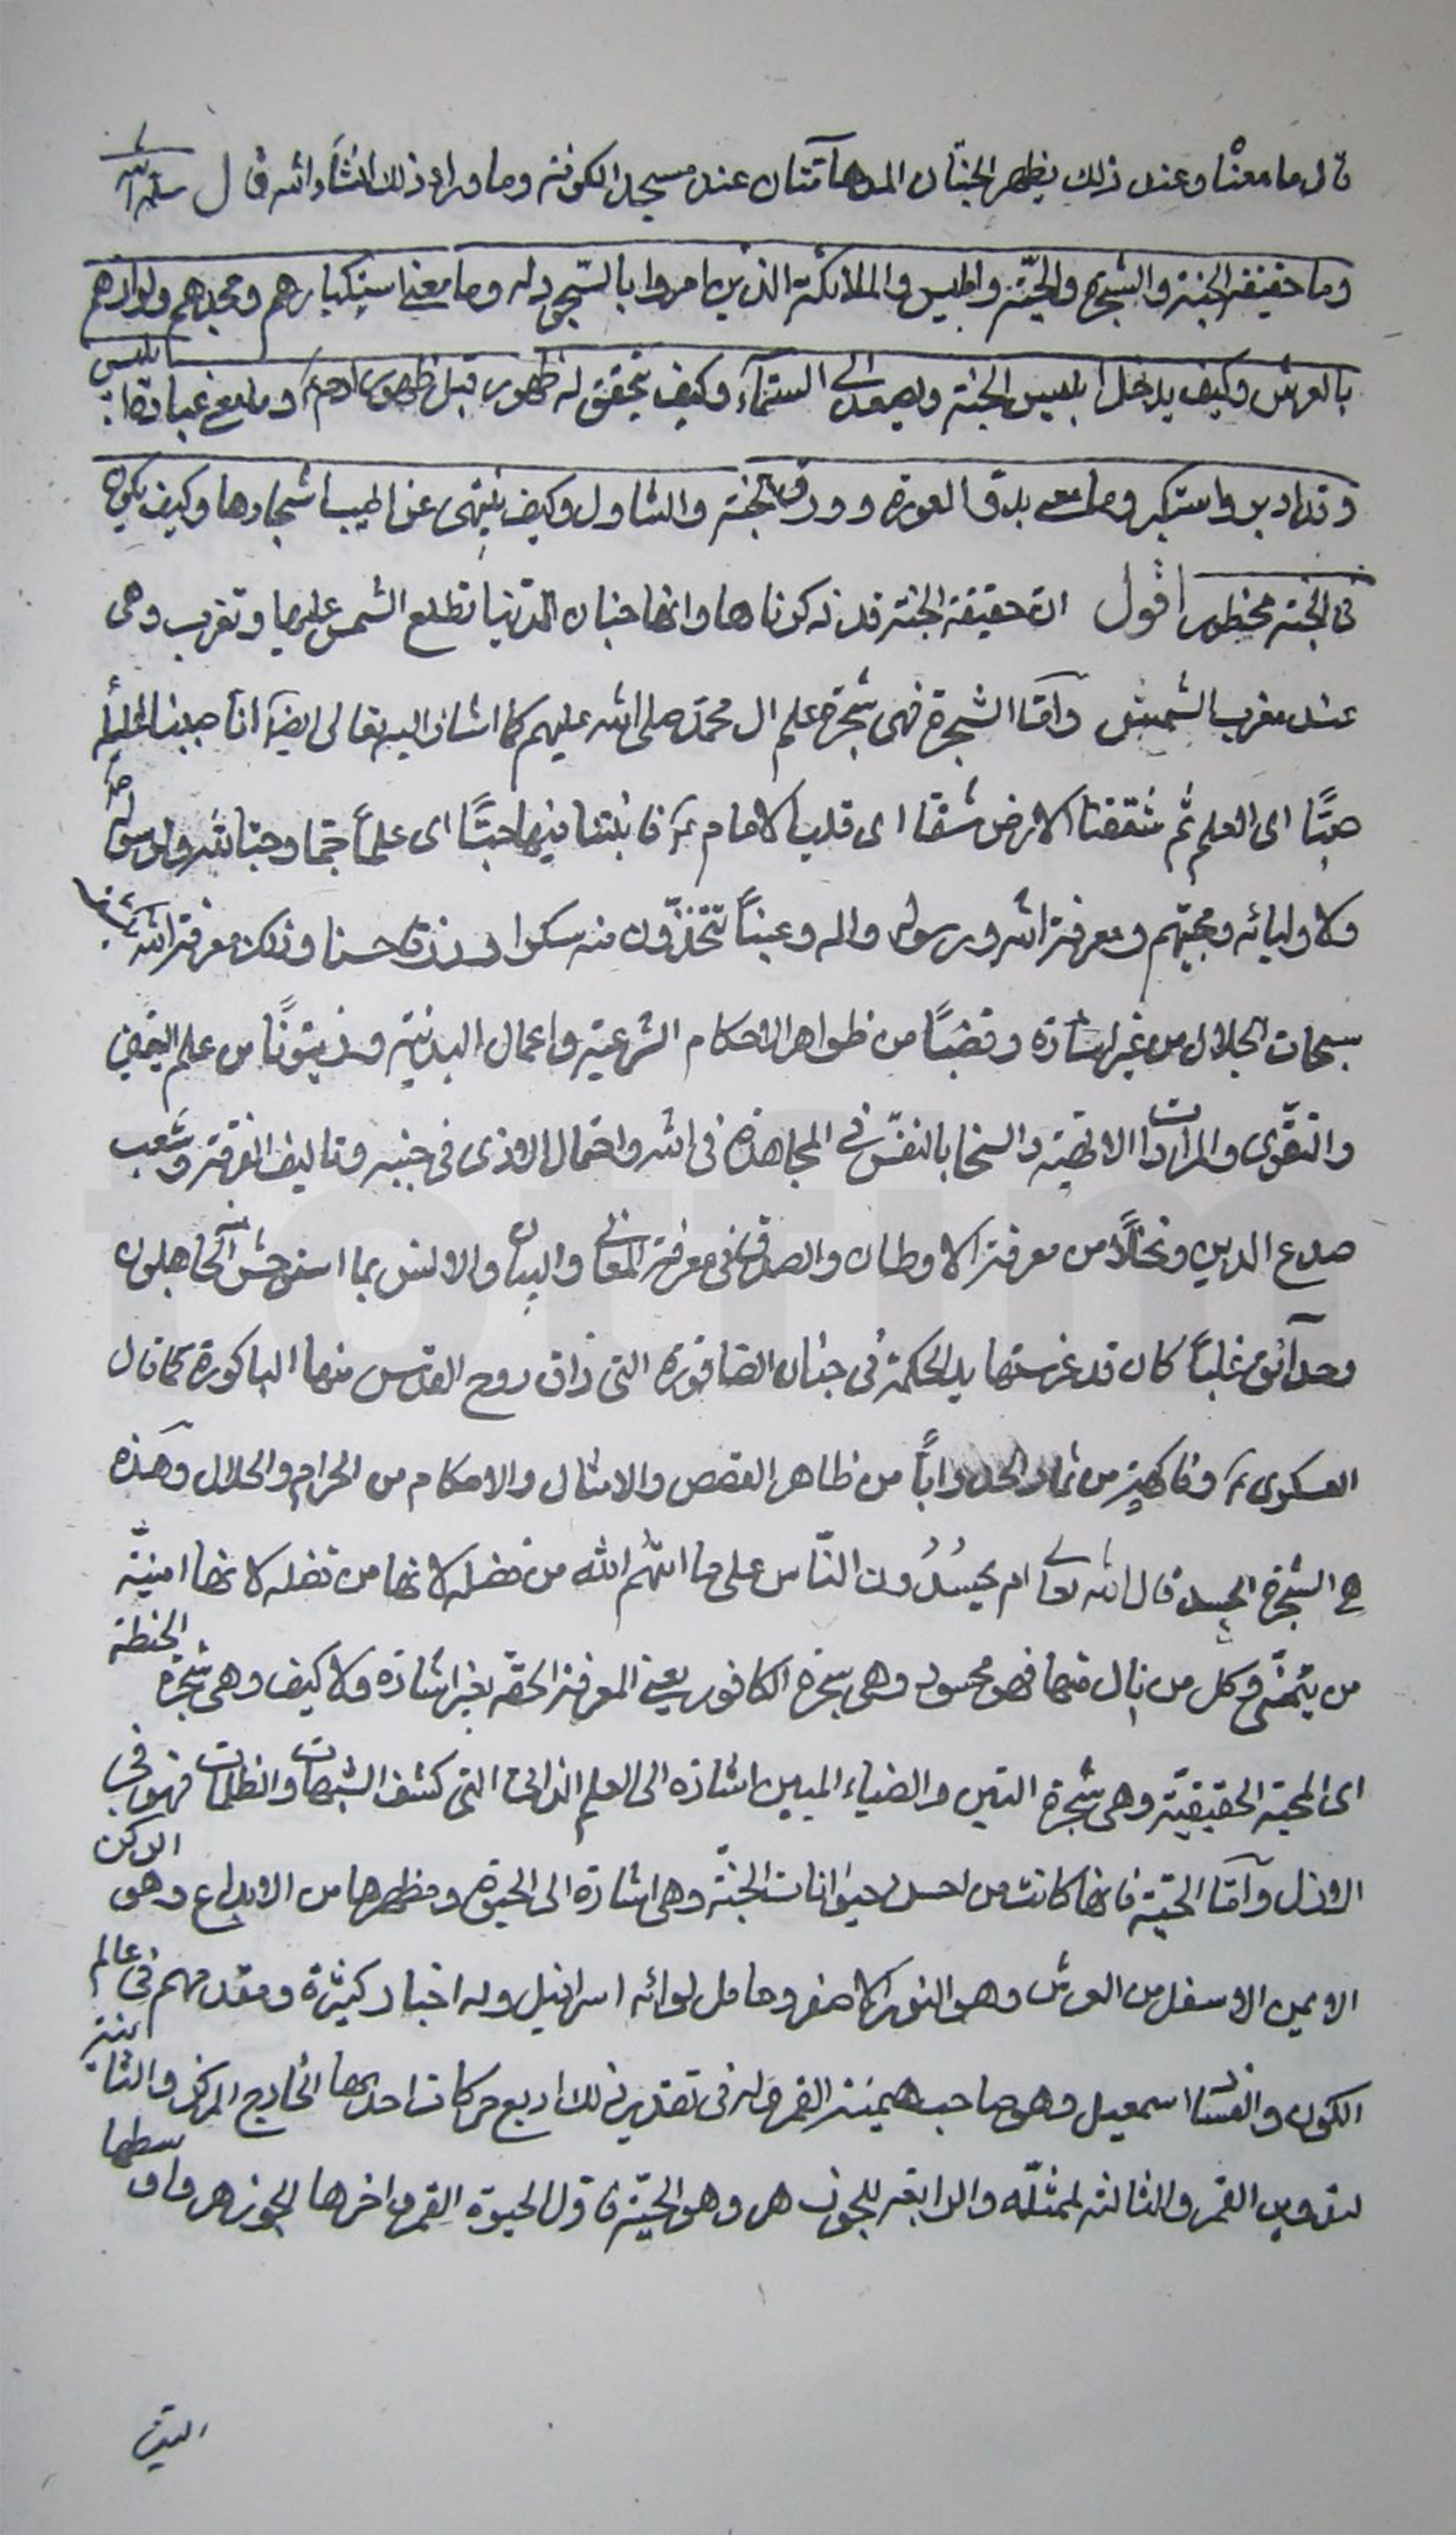 قال ما معناه وعند ذلك يظهر الجنتان المدهامتان عند مسجد الكوفة وما وراء ذلك انشاء الله قال سلمه الله
وما حقيقة الجنة والشجرة والحية وابليس والملائكة الذين امروا بالسجود له وما معنى استكبارهم و ولواذهم
بالعرش وكيف يدخل ابليس الجنة ويصعد الى السماء وكيف يتحقق له ظهور قبل ظهور ادم ع وما معنى عبادة ابليس
وقد ادبر واستكبر وما معنى بدو العورة وورق الجنة والتناول وكيف ينتهى عن اطيب اشجارها وكيف يكون
فى الجنة محظور اقول ان حقيقة الجنة قد ذكرناها وانها جنان الدنيا تطلع الشمس عليها وتغرب وهى
عند مغرب الشمس وامّا الشجرة فهى شجرة علم ال محمد صلى الله عليهم كما اشار اليه تعالى انا صببنا الماء
صبًّا اى العلم ثم شققنا الارض شقا اى قلب الامام ع فانبتنا فيها حبًّا اى علماً جما وحبا لله ولرسوله
ولاوليائه ومحبيهم ومعرفة الله ورسوله واله وعنباً تتخذون منه سكرا ورزقا حسنا وذلك معرفة الله
سبحات الجلال من غير اشارة وقضبًا من ظواهر الاحكام الشرعية واعمال البدنية وزيتونًا من علم اليقين
والتقوى الالهية والسخا بالنفس فى المجاهدة فى الله واحتمال الاذى فى جنبه وتاليف الفرقة وشعب
صدع الدين ونخلًا من معرفة الاوطان والصدق فى معرفة المعانى والبيان والانس بما استوحش منه الجاهلون
وحدآئق غلباً كان قد غرستها يد الحكمة فى جنان الصاقورة التى ذاق روح القدس منها الباكورة كما قال
العسكرى ع وفاكهة من ثمار واباً من ظاهر القصص والامثال والاحكام من الحرام والحلال وهذه
هى الشجرة الحسد قال الله تعالى ام يحسدون الناس على ما اتيهم الله من فضله لانها من فضله لانها امنية
من يتمنى وكل من نال منها فهو محسود وهى شجرة الكافور يعنى المعرفة الحقة بغير اشارة ولا كيف وهى شجرة الحنطة
اى المحبة الحقيقية وهى شجرة التين والضياء المبين اشارة الى العلم الذاتى التى كشف الشبهات والظلمات فهو فى
الازل وآمّا الحية فانها كانت من احسن حيوانات الجنة وهى اشارة الى الحيوة ومظهرها من الابداع وهو الركن
الايمن الاسفل من العرش وهو النور الاصفر وحامل لوائه اسرافيل وله اخبار كثيرة ومقدمهم فى عالم
الكون والفساد اسمعيل وهو صاحب هيمنة القمر وله فى تقدير ذلك اربع حركات احديها الخارج المركز والثانية
لتدوير القمر والثالثة لممثله والرابعة للجوزهر وهو الحية فاول الحيوة القمر واخرها الجوزهر واوسطها
التدوير